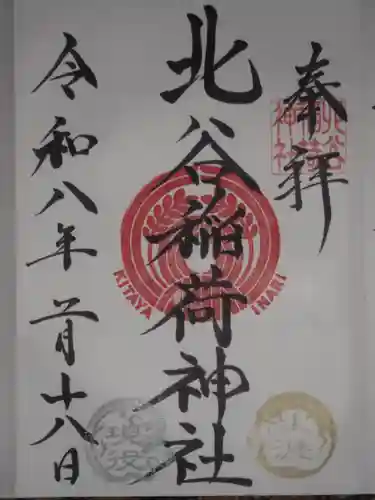 奉拝
北谷稲荷神社
令和八年二月十八日
北谷稲荷神社
KITAYA INARI